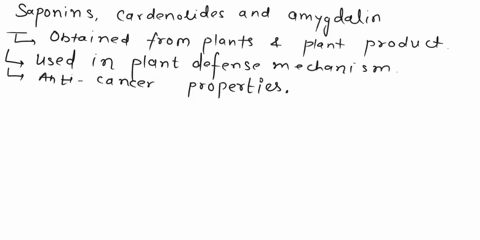 Saponins, cardenolides and amygdalin
↳ Obtained from plants & plant product.
↳ used in plant defense mechanism.
↳ Anti-cancer properties.